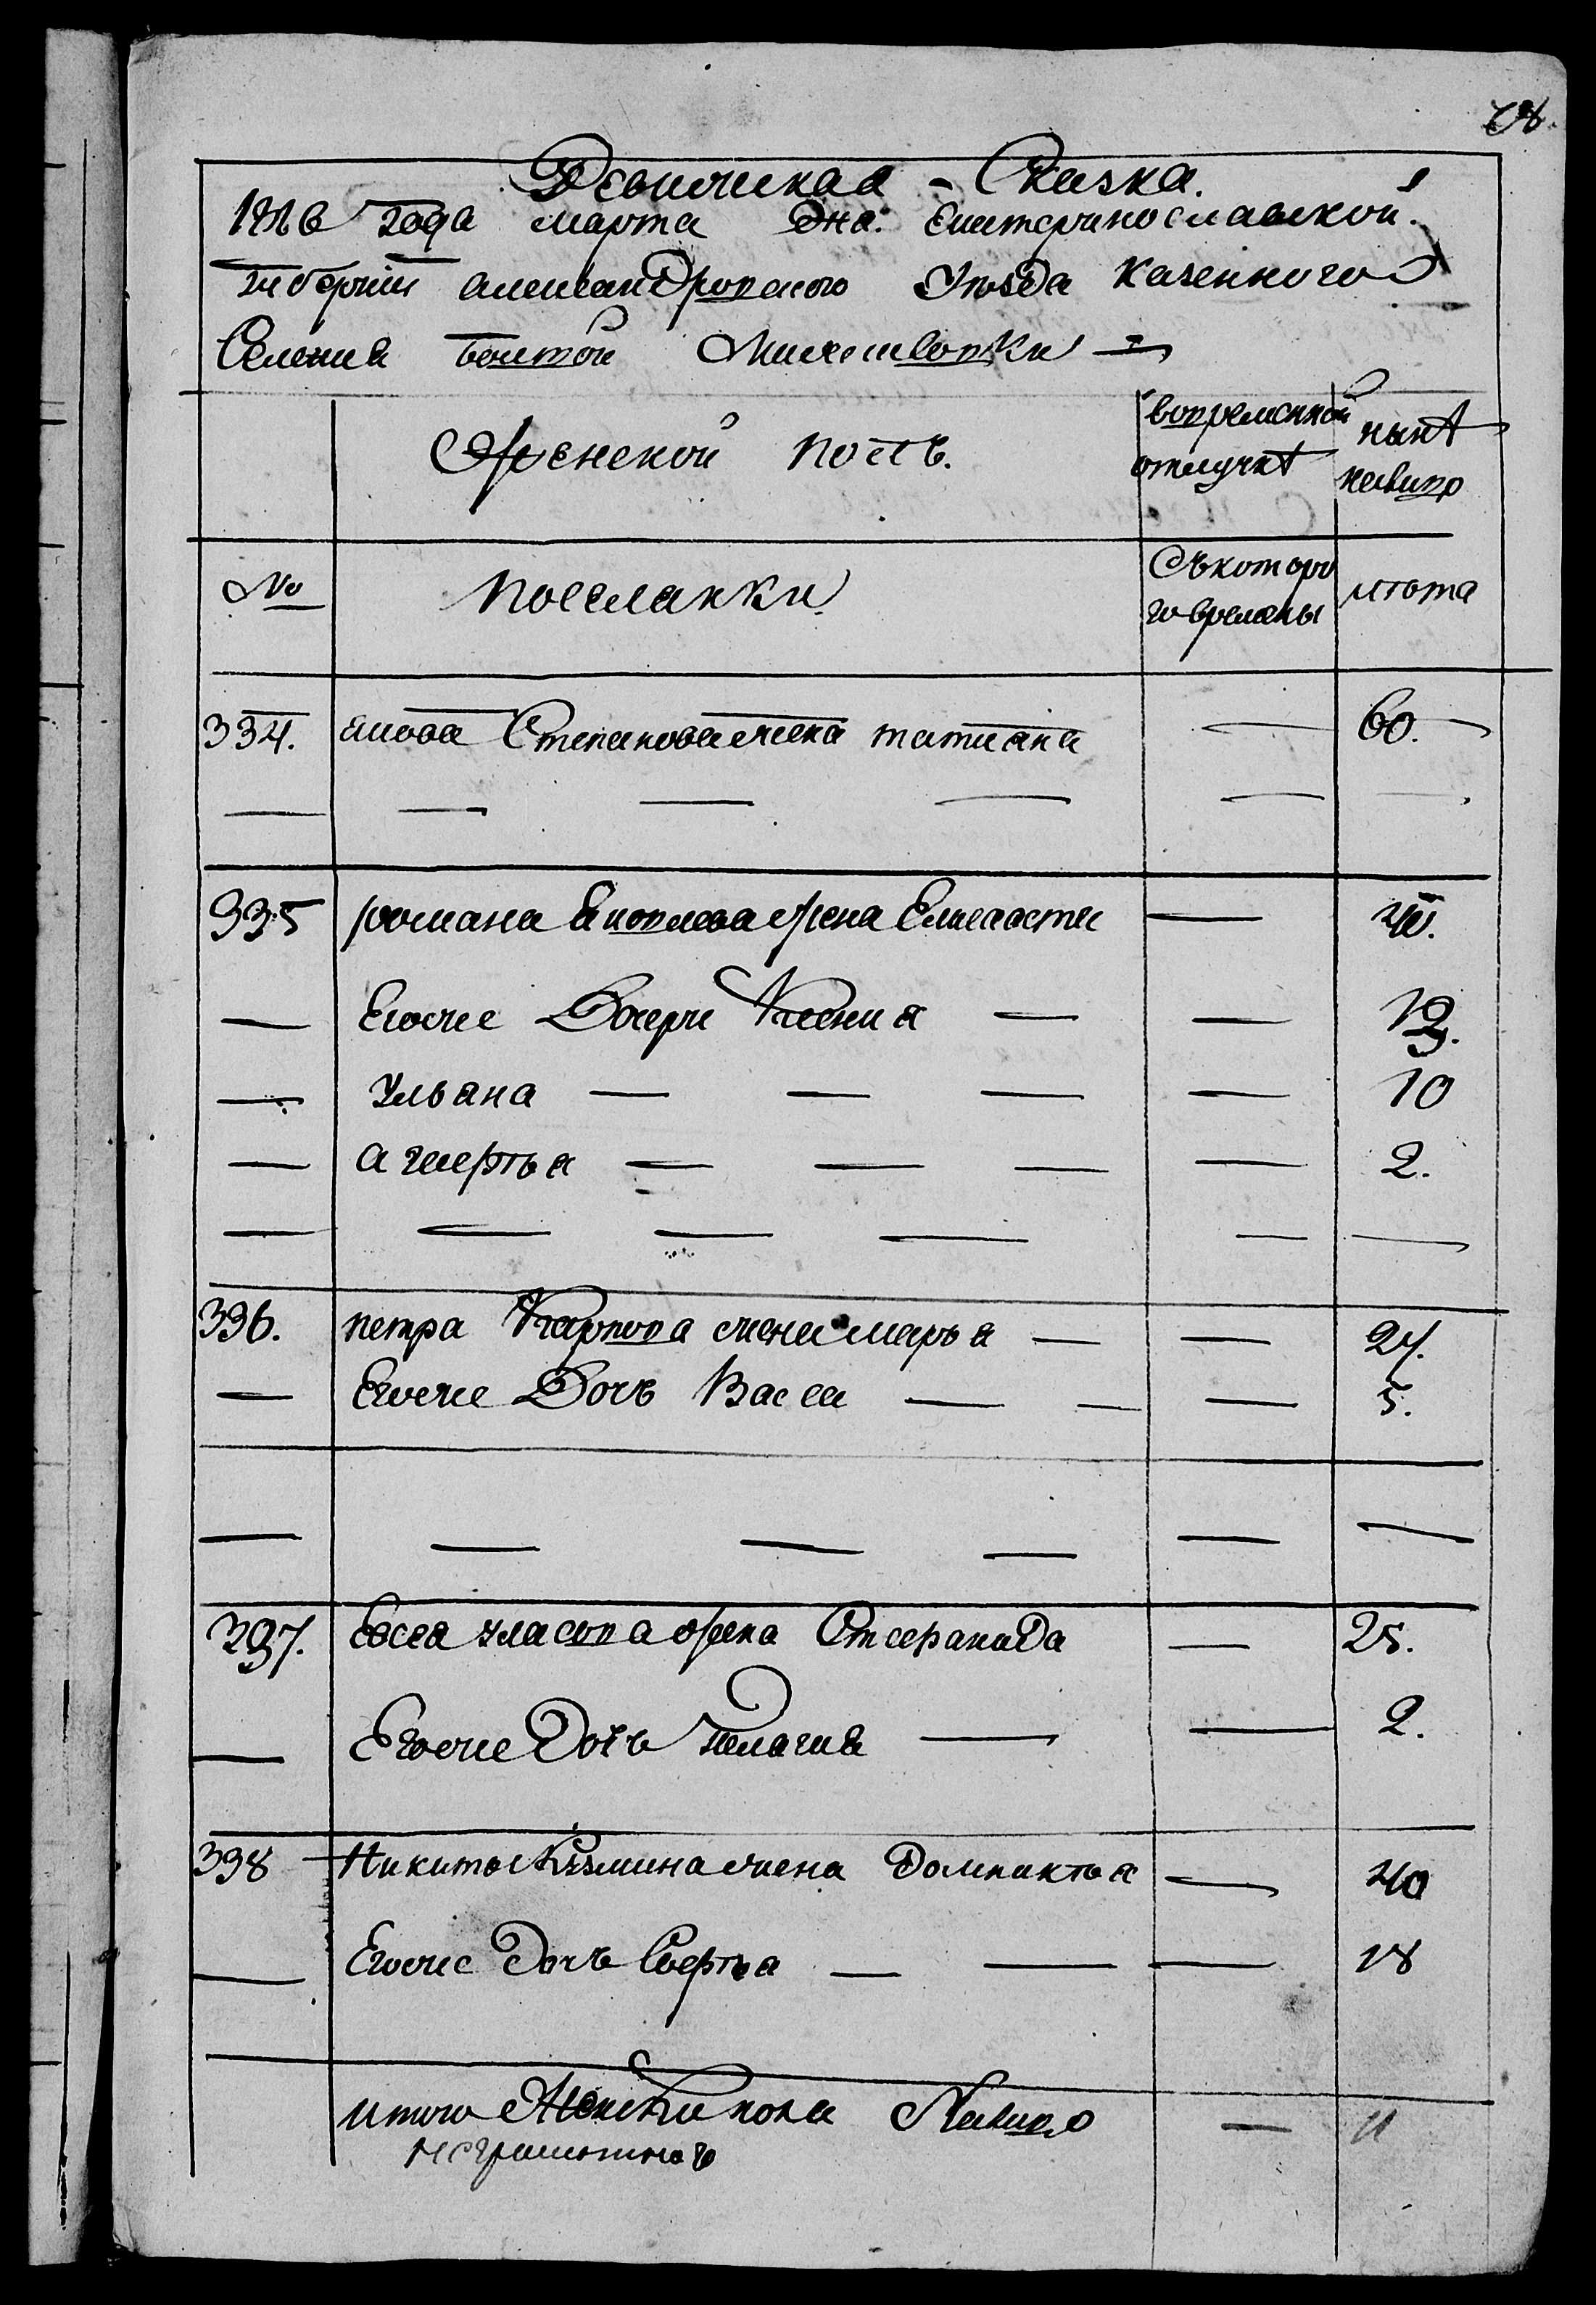 Ревижская - Сказка.
1816 года марта дня. Екатеринославской
губернии александровского Уезда казенного
Селения Белтой Михайловки
Женской полъ.
вовременной отлучке
ныне налицо
№
поселянки
Съкоторо го времены
лета
334. якова Степанова жена татиана 60.
335 романа Яковлева жена Елисавета 40.
Егоже Дочери Ксения 13.
Ульана 10
агафья 2.
336. петра Карпова жена марья 24.
Егоже Дочь Васса 5.
337. Евсея уласова жена Стефанида 25.
Егоже Дочь пелагия 2.
338 Никиты Кузмина жена Домникья 40
Егоже Дочь Софья 18
итого Женска пола Налицо 11